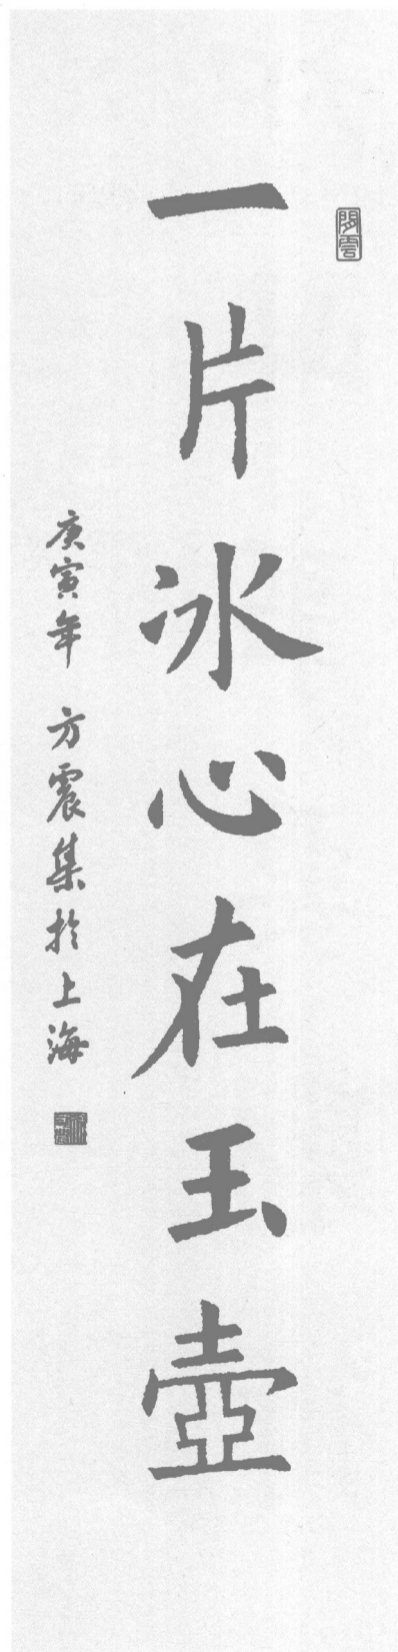 一片冰心在玉壺
庚寅年 方震集於上海